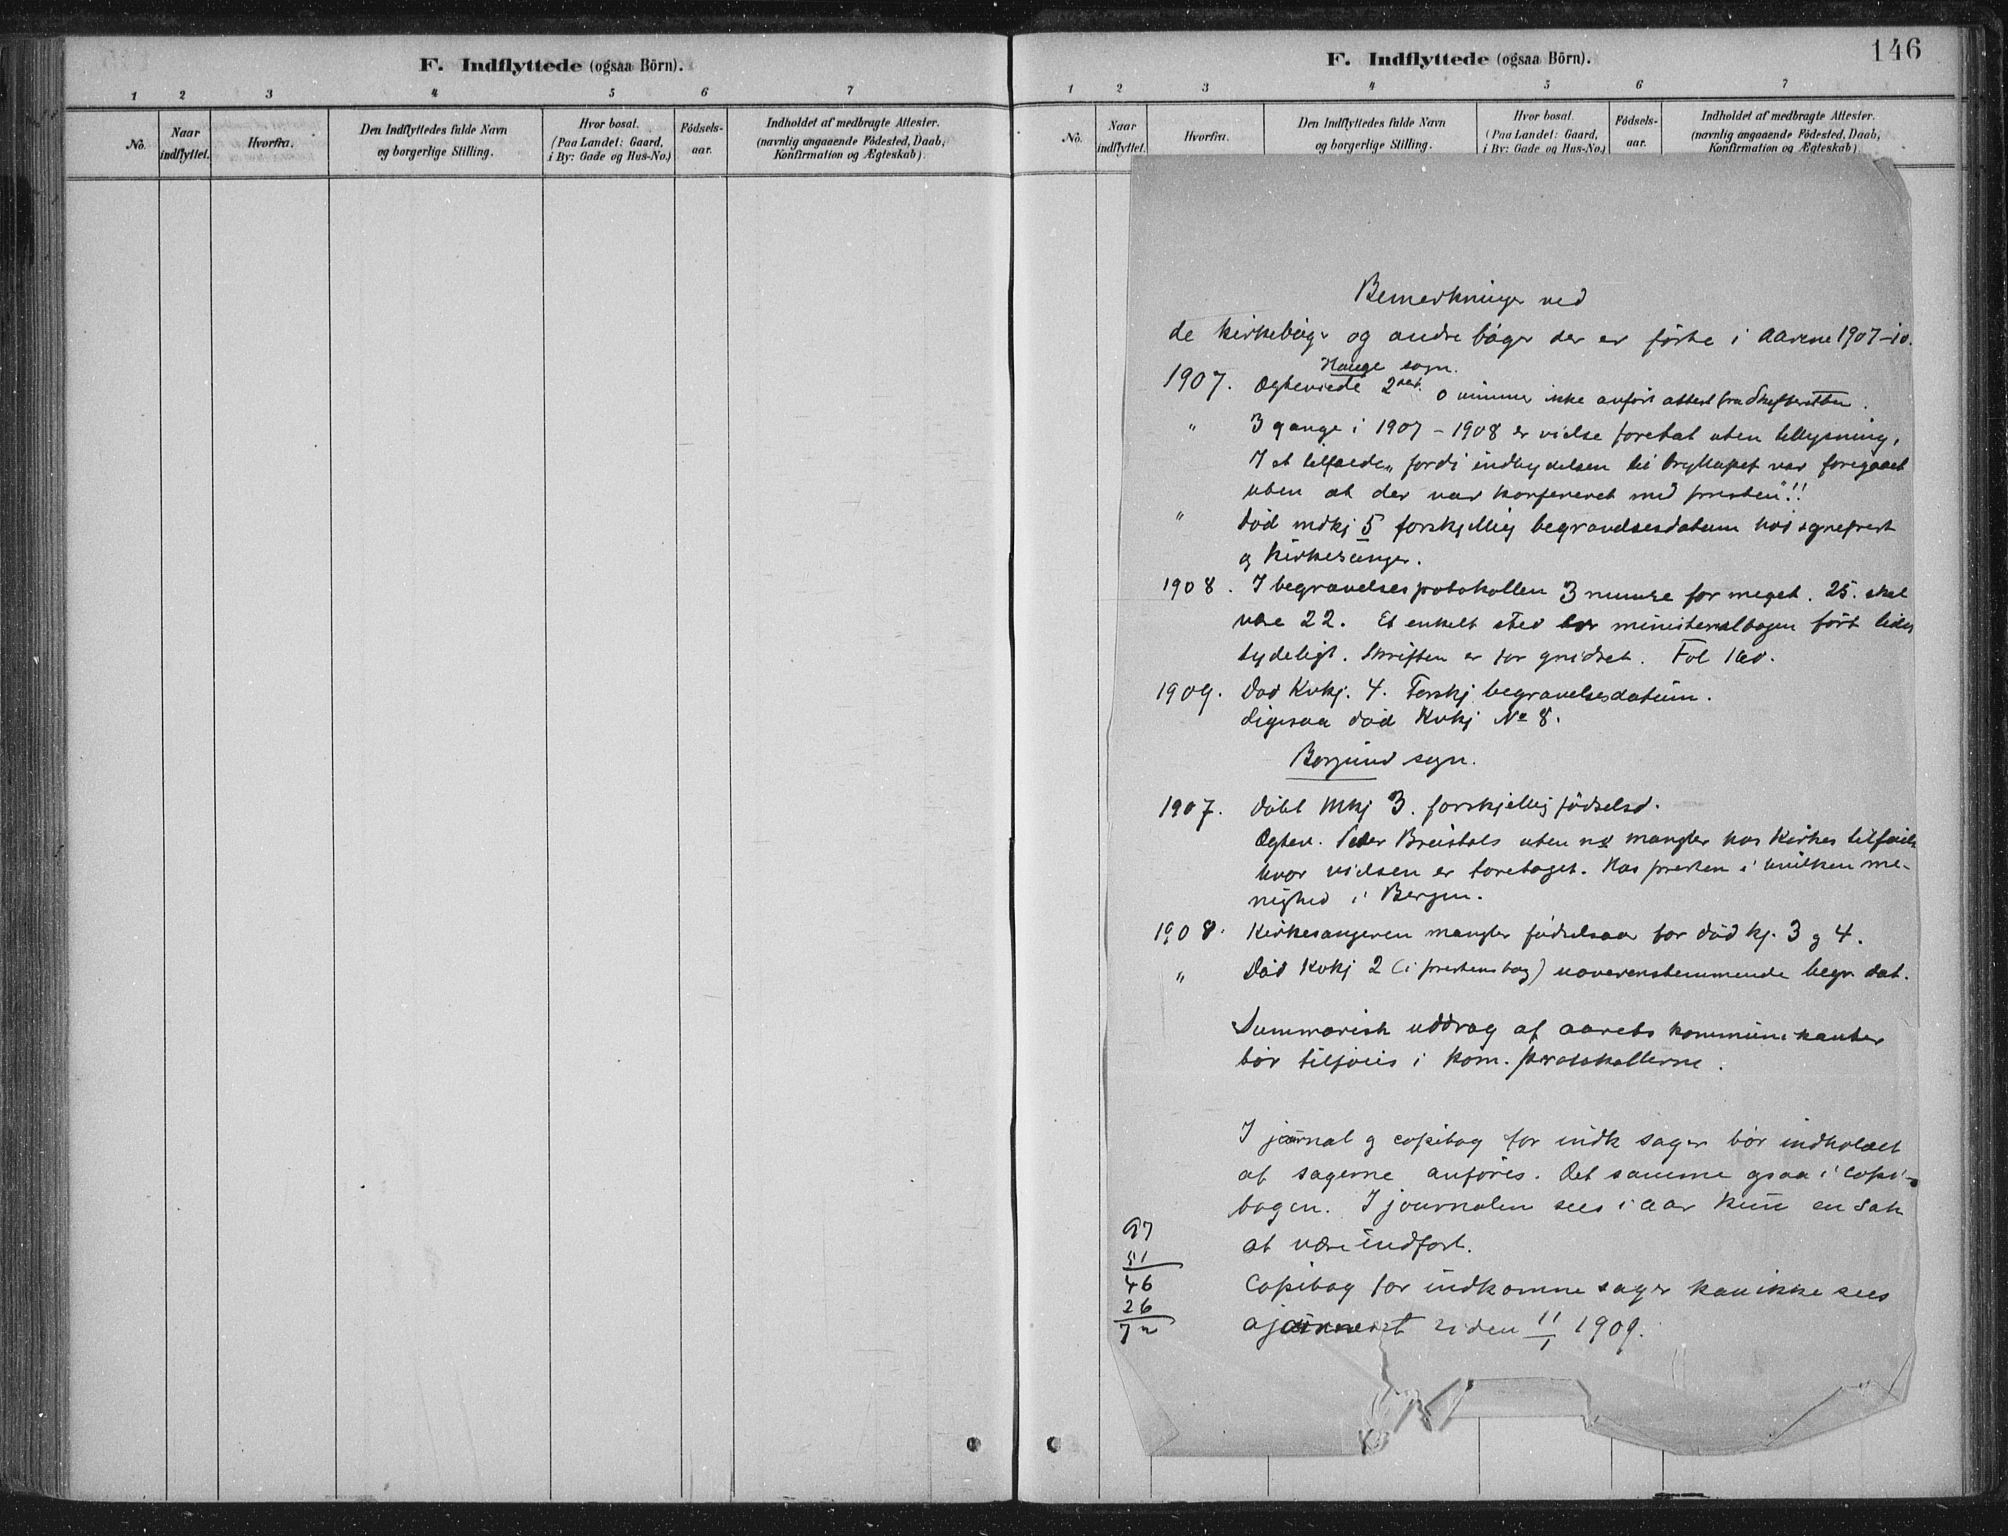 F. Indflyttede (ogsaa Börn).
1 2 3 4 5 6 7
No. Naar indflyttet. Hvorfra. Den Indflyttedes fulde Navn og borgerlige Stilling. Hvor bosat. (Paa Landet: Gaard, i By: Gade og Hus-No.) Födsels-aar. Indholdet af medbragte Attester. (navnlig angaaende Födested, Daab, Konfirmation og Ægteskab)
146
F. Indflyttede (ogsaa Börn).
1 2 3 4 5 6 7
No. Naar indflyttet. Hvorfra. Den Indflyttedes fulde Navn og borgerlige Stilling. Hvor bosat. (Paa Landet: Gaard, i By: Gade og Hus-No.) Födsels-aar. Indholdet af medbragte Attester. (navnlig angaaende Födested, Daab, Konfirmation og Ægteskab)
Bemerkninger ved
de kirkebøger og andre bøger der er førte i aarene 1907-10.
Hauge sogn.
1907. Ægteviede 2 ikke anført attest fra skifteretten.
" 3 gange i 1907 - 1908 er vielse foretat uten tillysning,
I et tilfælde „fordi indbydelsen til bryllupet var foregaaet
uten at der var konfereret med presten"!!
" Død mdkj 5 forskjellig begravelsesdatum hos sogneprest
og kirkesanger.
1908. I begravelsesprotokollen 3 numre for meget. 25. skal
være 22. Et enkelt sted ministerialbogen ført
tydeligt. Skriften er for gnidret. Fol 160.
1909. Død Kvkj. 4. Forskj begravelsesdatum.
Ligesaa død Kvkj No 8.
Borgund sogn.
1907. Døbt Mkj 3. forskjellig fødselsd.
Ægtev. Peder Breistøls uten no mangler hos Kirkes tilføiels
hvor vielsen er foretaget. Hos presten i hvilken me-
nighed i Bergen.
1908. Kirkesangeren mangler fødselsaar for død kj. 3 og 4.
" Død Kvkj 2 (i prestens bog) uoverensstemmende begr. dat.
Summarisk uddrag af aarets kommunikanter
bør tilføies i kom. protokollerne.
I journal og copibog for indk sager bør indholdet
af sagerne anføres. Det samme ogsaa i copi-
bogen. I journalen sees i aar kun en sak
at være indført.
Copibog for indkomne sager kan ikke sees
ajourneret siden 11/1 1909.
97
51
46
26
72